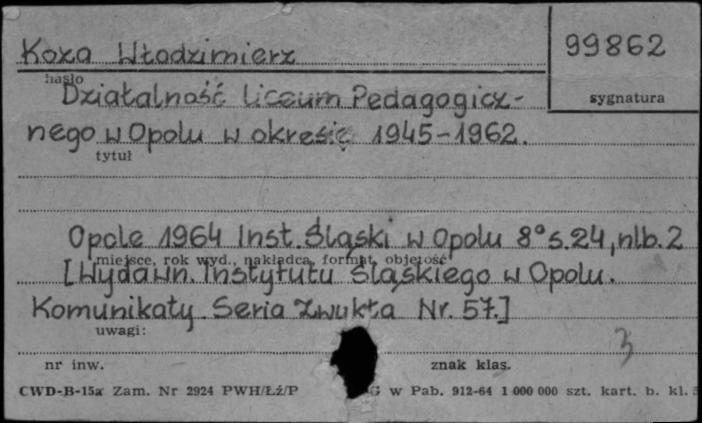 Koza Włodzimierz
99862
hasło
sygnatura
Działalność Liceum Pedagogicz-
nego w Opolu w okresie 1945-1962.
tytuł
Opole 1964 Inst. Śląski w Opolu 8° s.24, nlb.2
miejsce, rok wyd., nakładca, format, objętość
[Wydawn. Instytutu Śląskiego w Opolu.
Komunikaty. Seria Zwykła Nr. 57.]
uwagi:
3
nr inw.
znak klas.
CWD-B-15a Zam. Nr 2924 PWH/Łź/P
G w Pab. 912-64 1 000 000 szt. kart. b. kl.